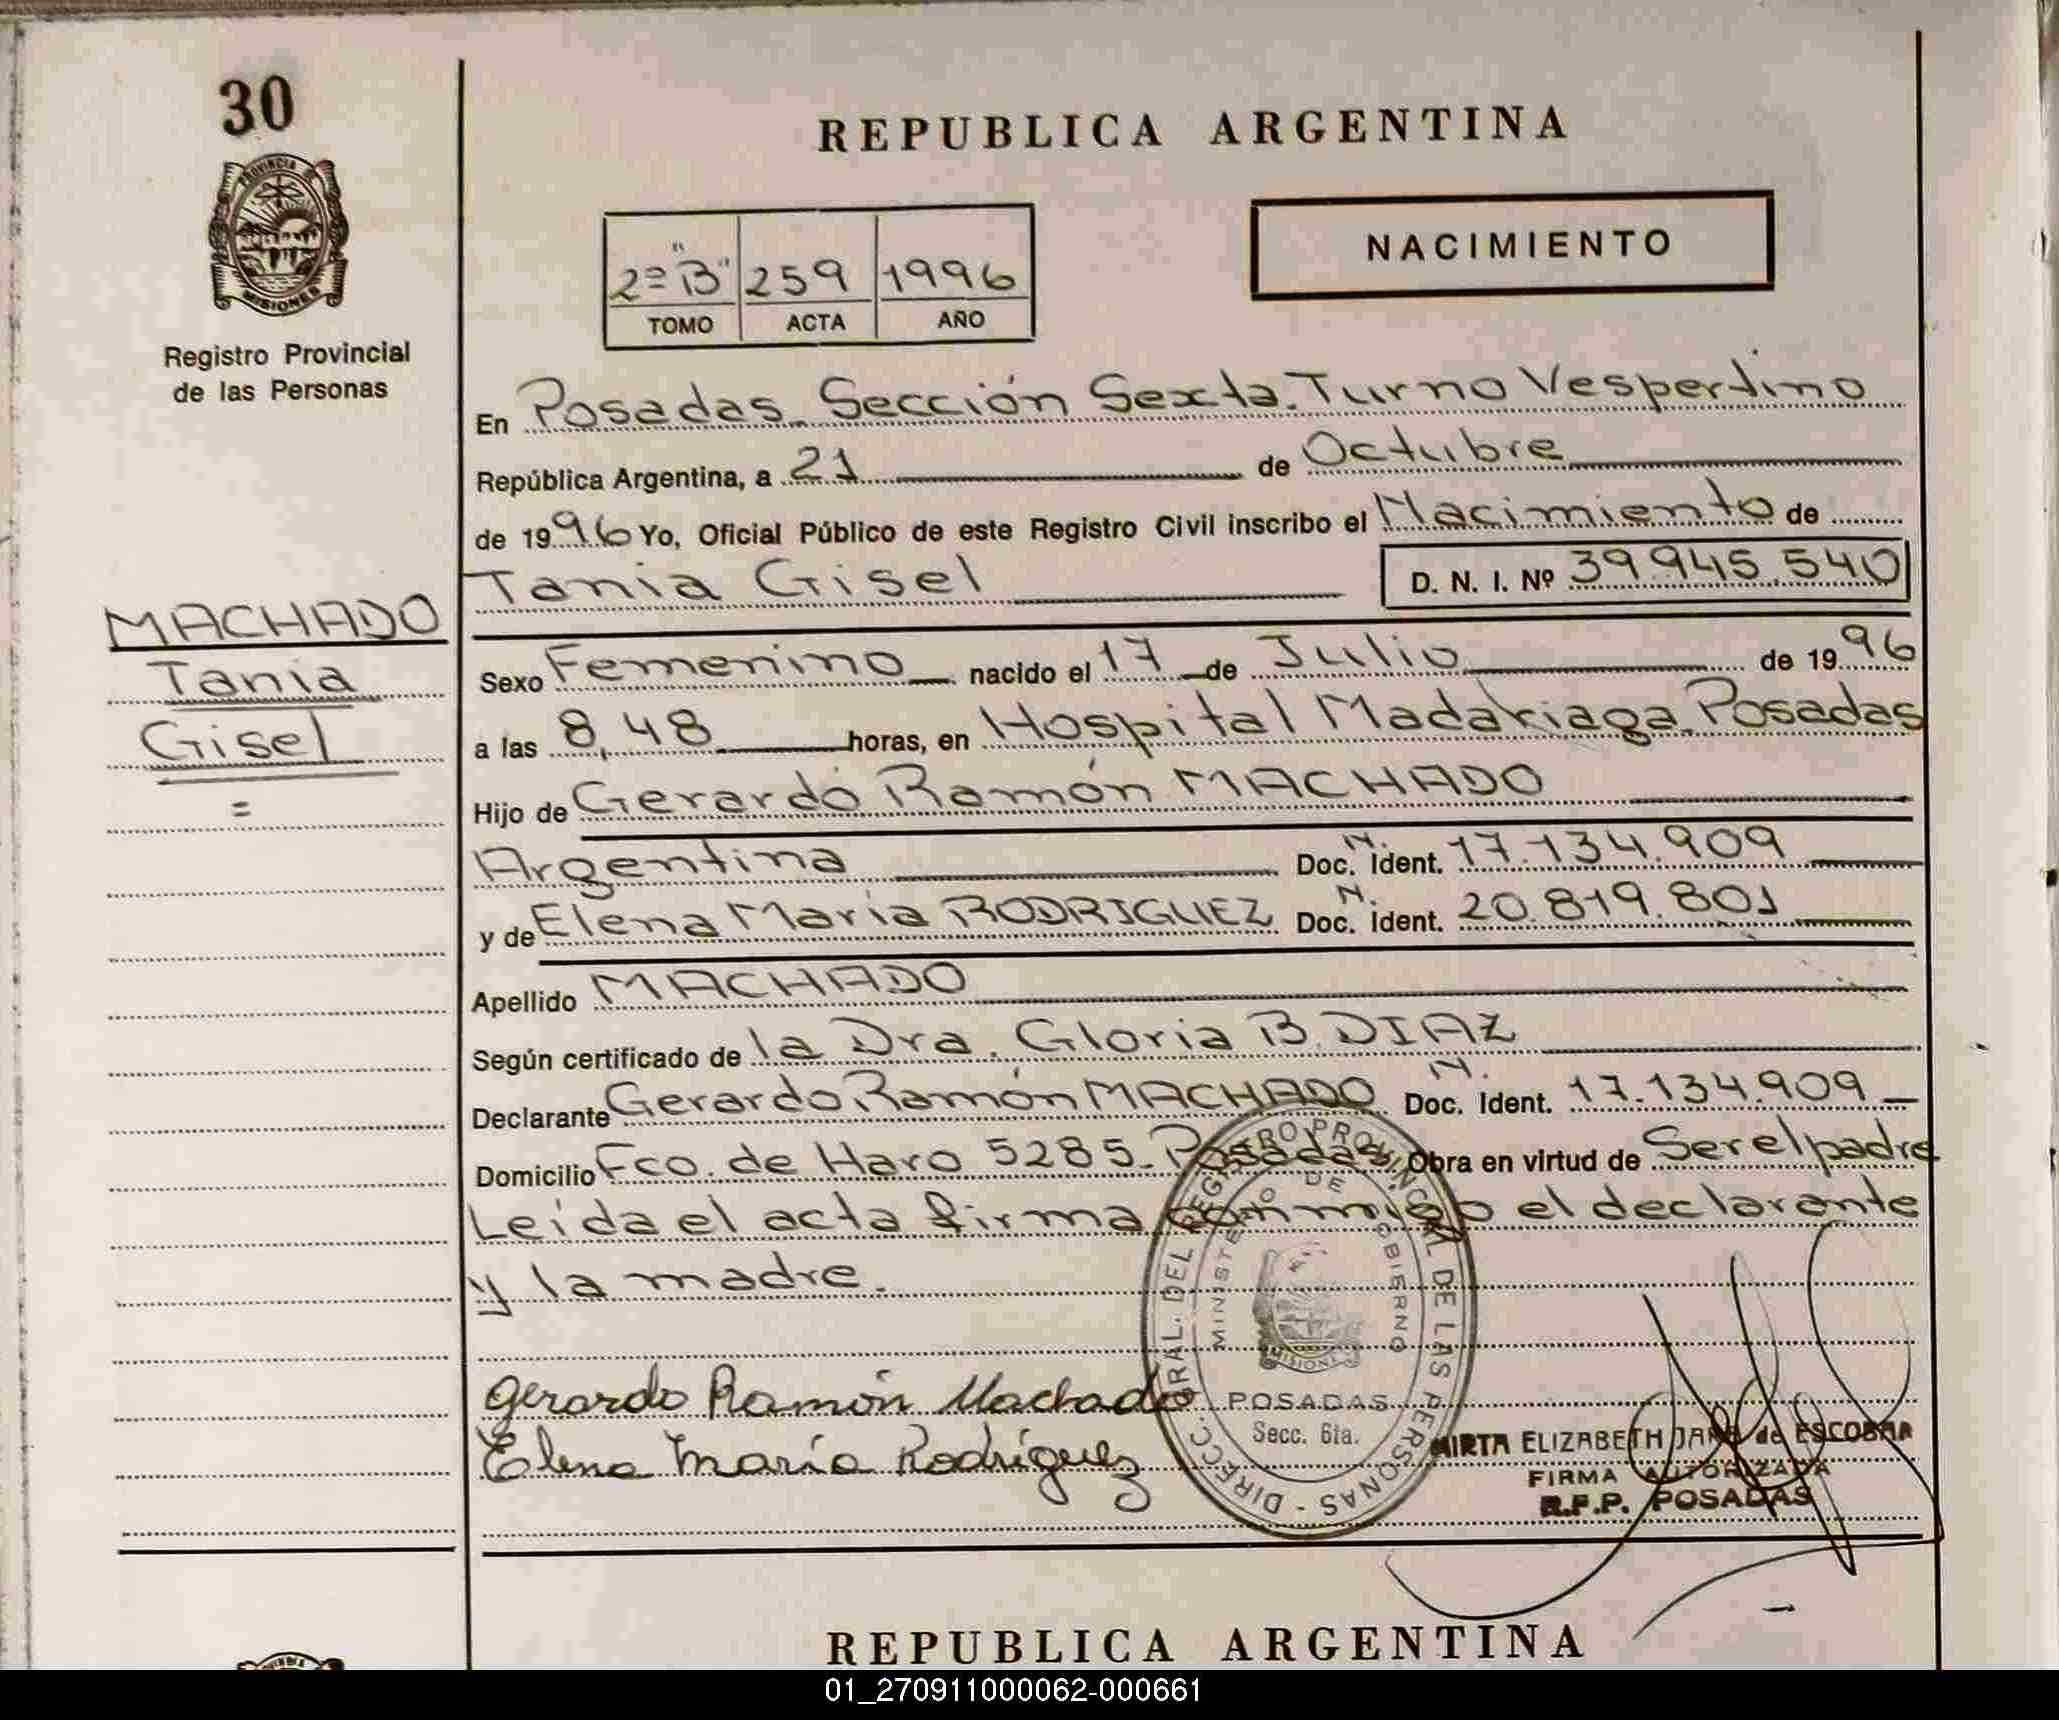 30
REPUBLICA ARGENTINA
PROVINCIA DE
MISIONES
Registro Provincial
de las Personas
2º "B" 259 1996
TOMO ACTA AÑO
NACIMIENTO
En Posadas Sección Sexta. Turno Vespertino
República Argentina, a 21 de Octubre
de 1996 Yo, Oficial Público de este Registro Civil inscribo el Nacimiento de
Tania Gisel D. N. I. Nº 39.945.540
MACHADO
Tania
Gisel
=
Sexo Femenino nacido el 17 de Julio de 1996
a las 8,48 horas, en Hospital Madariaga. Posadas
Hijo de Gerardo Ramón MACHADO
Argentina Doc. N. Ident. 17.134.909
y de Elena María RODRIGUEZ Doc. N. Ident. 20.819.801
Apellido MACHADO
Según certificado de la Dra. Gloria B. DIAZ
Declarante Gerardo Ramón MACHADO Doc. N. Ident. 17.134.909
Domicilio Fco. de Haro 5285. Posadas Obra en virtud de Ser el padre
Leída el acta firma conmigo el declarante
y la madre.
Gerardo Ramón Machado
Elena María Rodríguez
DIRECC. GRAL. DEL REGISTRO PROVINCIAL DE LAS PERSONAS -
MINISTERIO DE GOBIERNO
MISIONES
POSADAS
Secc. 6ta.
MIRTA ELIZABETH de ESCOBAR
FIRMA AUTORIZADA
R.P.P. POSADAS
REPUBLICA ARGENTINA
01_270911000062-000661